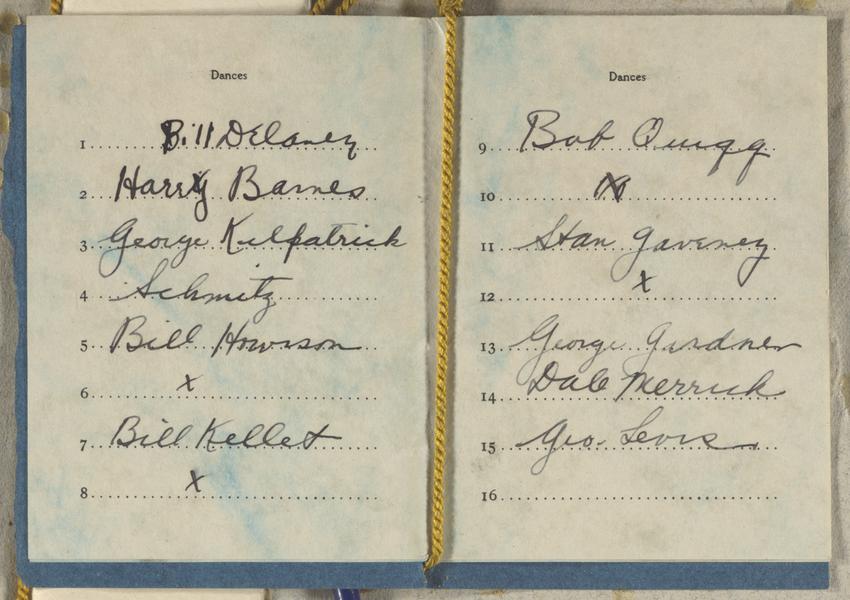 Dances
1 Bill Delaney
2 Harry Barnes
3 George Kilpatrick
4 Schmitz
5 Bill Howison
6 x
7 Bill Kellet
8 x
Dances
9 Bob Quigg
10 x
11 Stan Gaveney
12 x
13 George Gardner
14 Dale Merrick
15 Geo. Levis
16